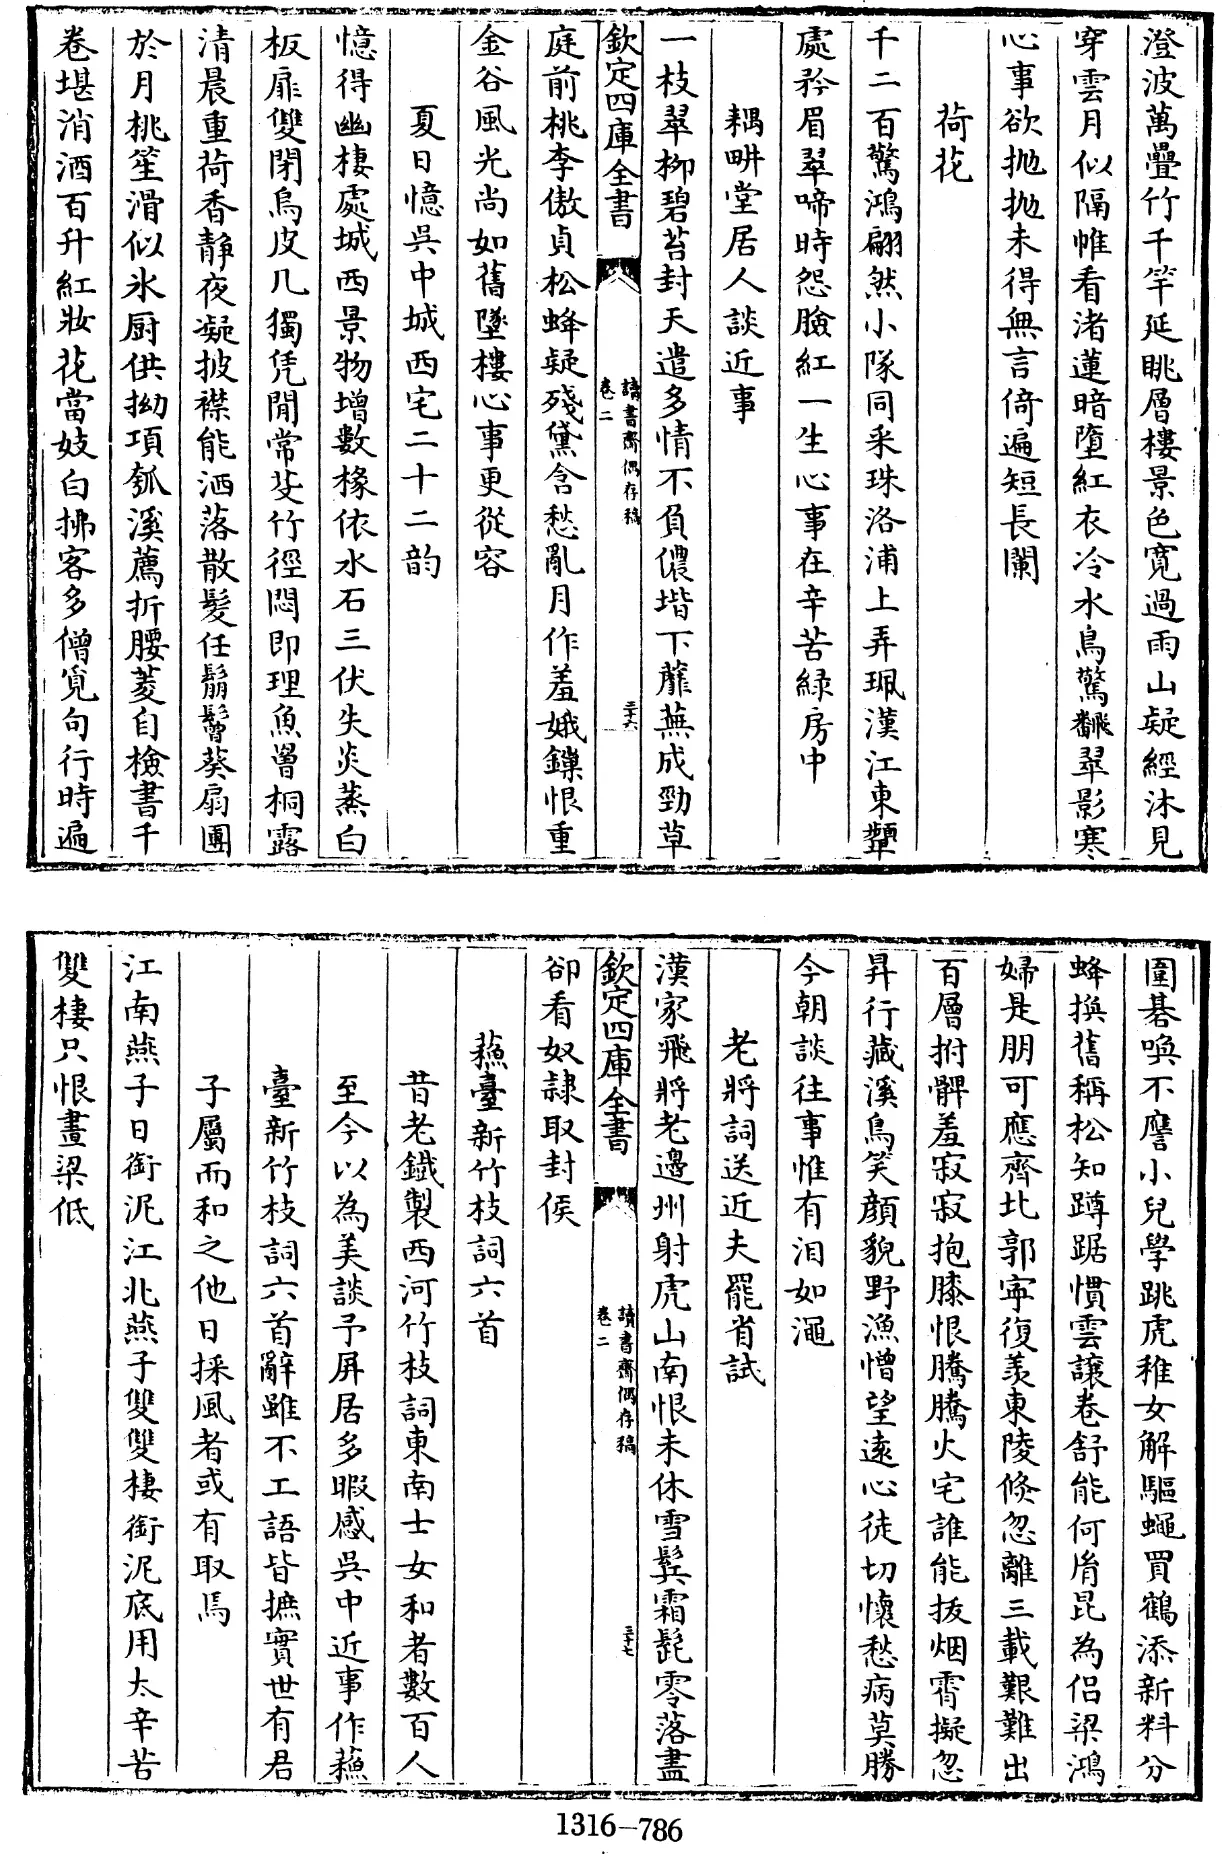 澄波萬疊竹千竿延眺層樓景色寛過雨山疑經沐見
穿雲月似隔帷看渚蓮暗墮紅衣冷水鳥驚翻翠影寒
心事欲抛抛未得無言倚遍短長闌
荷花
千二百驚鴻翩然小隊同采珠洛浦上弄珮漢江東顰
處矜眉翠啼時怨臉紅一生心事在辛苦緑房中
耦畊堂居人談近事
一枝翠柳碧苔封天遣多情不負儂堦下蘼蕪成勁草
欽定四庫全書
讀書齋偶存稿
卷二
三十六
庭前桃李傲貞松蜂疑殘黛含愁亂月作羞娥鏁恨重
金谷風光尚如舊墜樓心事更從容
夏日憶吳中城西宅二十二韵
憶得幽棲處城西景物增數椽依水石三伏失炎蒸白
板扉雙閉烏皮几獨凭閒常芟竹徑悶即理魚罾桐露
清晨重荷香静夜凝披襟能洒落散髮任鬅鬙葵扇團
於月桃笙滑似氷厨供拗項瓠溪薦折腰菱自檢書千
卷堪消酒百升紅妝花當妓白拂客多僧覓句行時遍
圍碁喚不譍小兒學跳虎稚女解驅蠅買鶴添新料分
蜂換舊稱松知蹲踞慣雲讓卷舒能何胤昆為侣梁鴻
婦是朋可應齊北郭寜復羨東陵倏忽離三載艱難出
百層拊髀羞寂寂抱膝恨騰騰火宅誰能拔烟霄擬忽
昇行藏溪鳥笑顔貌野漁憎望遠心徒切懷愁病莫勝
今朝談往事惟有泪如澠
老將詞送近夫罷省試
漢家飛將老邊州射虎山南恨未休雪鬂霜髭零落盡
欽定四庫全書
讀書齋偶存稿
卷二
三十七
卻看奴隷取封侯
蘓臺新竹枝詞六首
昔老鐵製西河竹枝詞東南士女和者數百人
至今以為美談予屏居多暇感吳中近事作蘓
臺新竹枝詞六首辭雖不工語皆摭實世有君
子屬而和之他日採風者或有取焉
江南燕子日銜泥江北燕子雙雙棲銜泥底用太辛苦
雙棲只恨畫梁低
1316-786